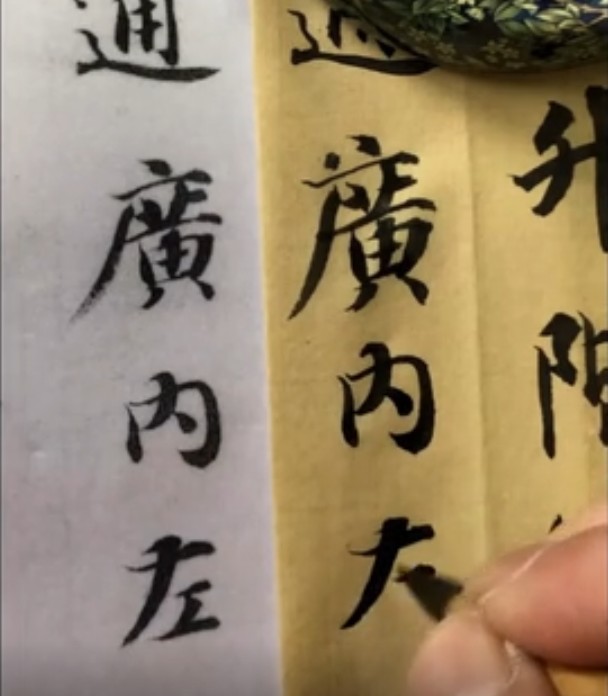 升階
通廣内
通廣内左